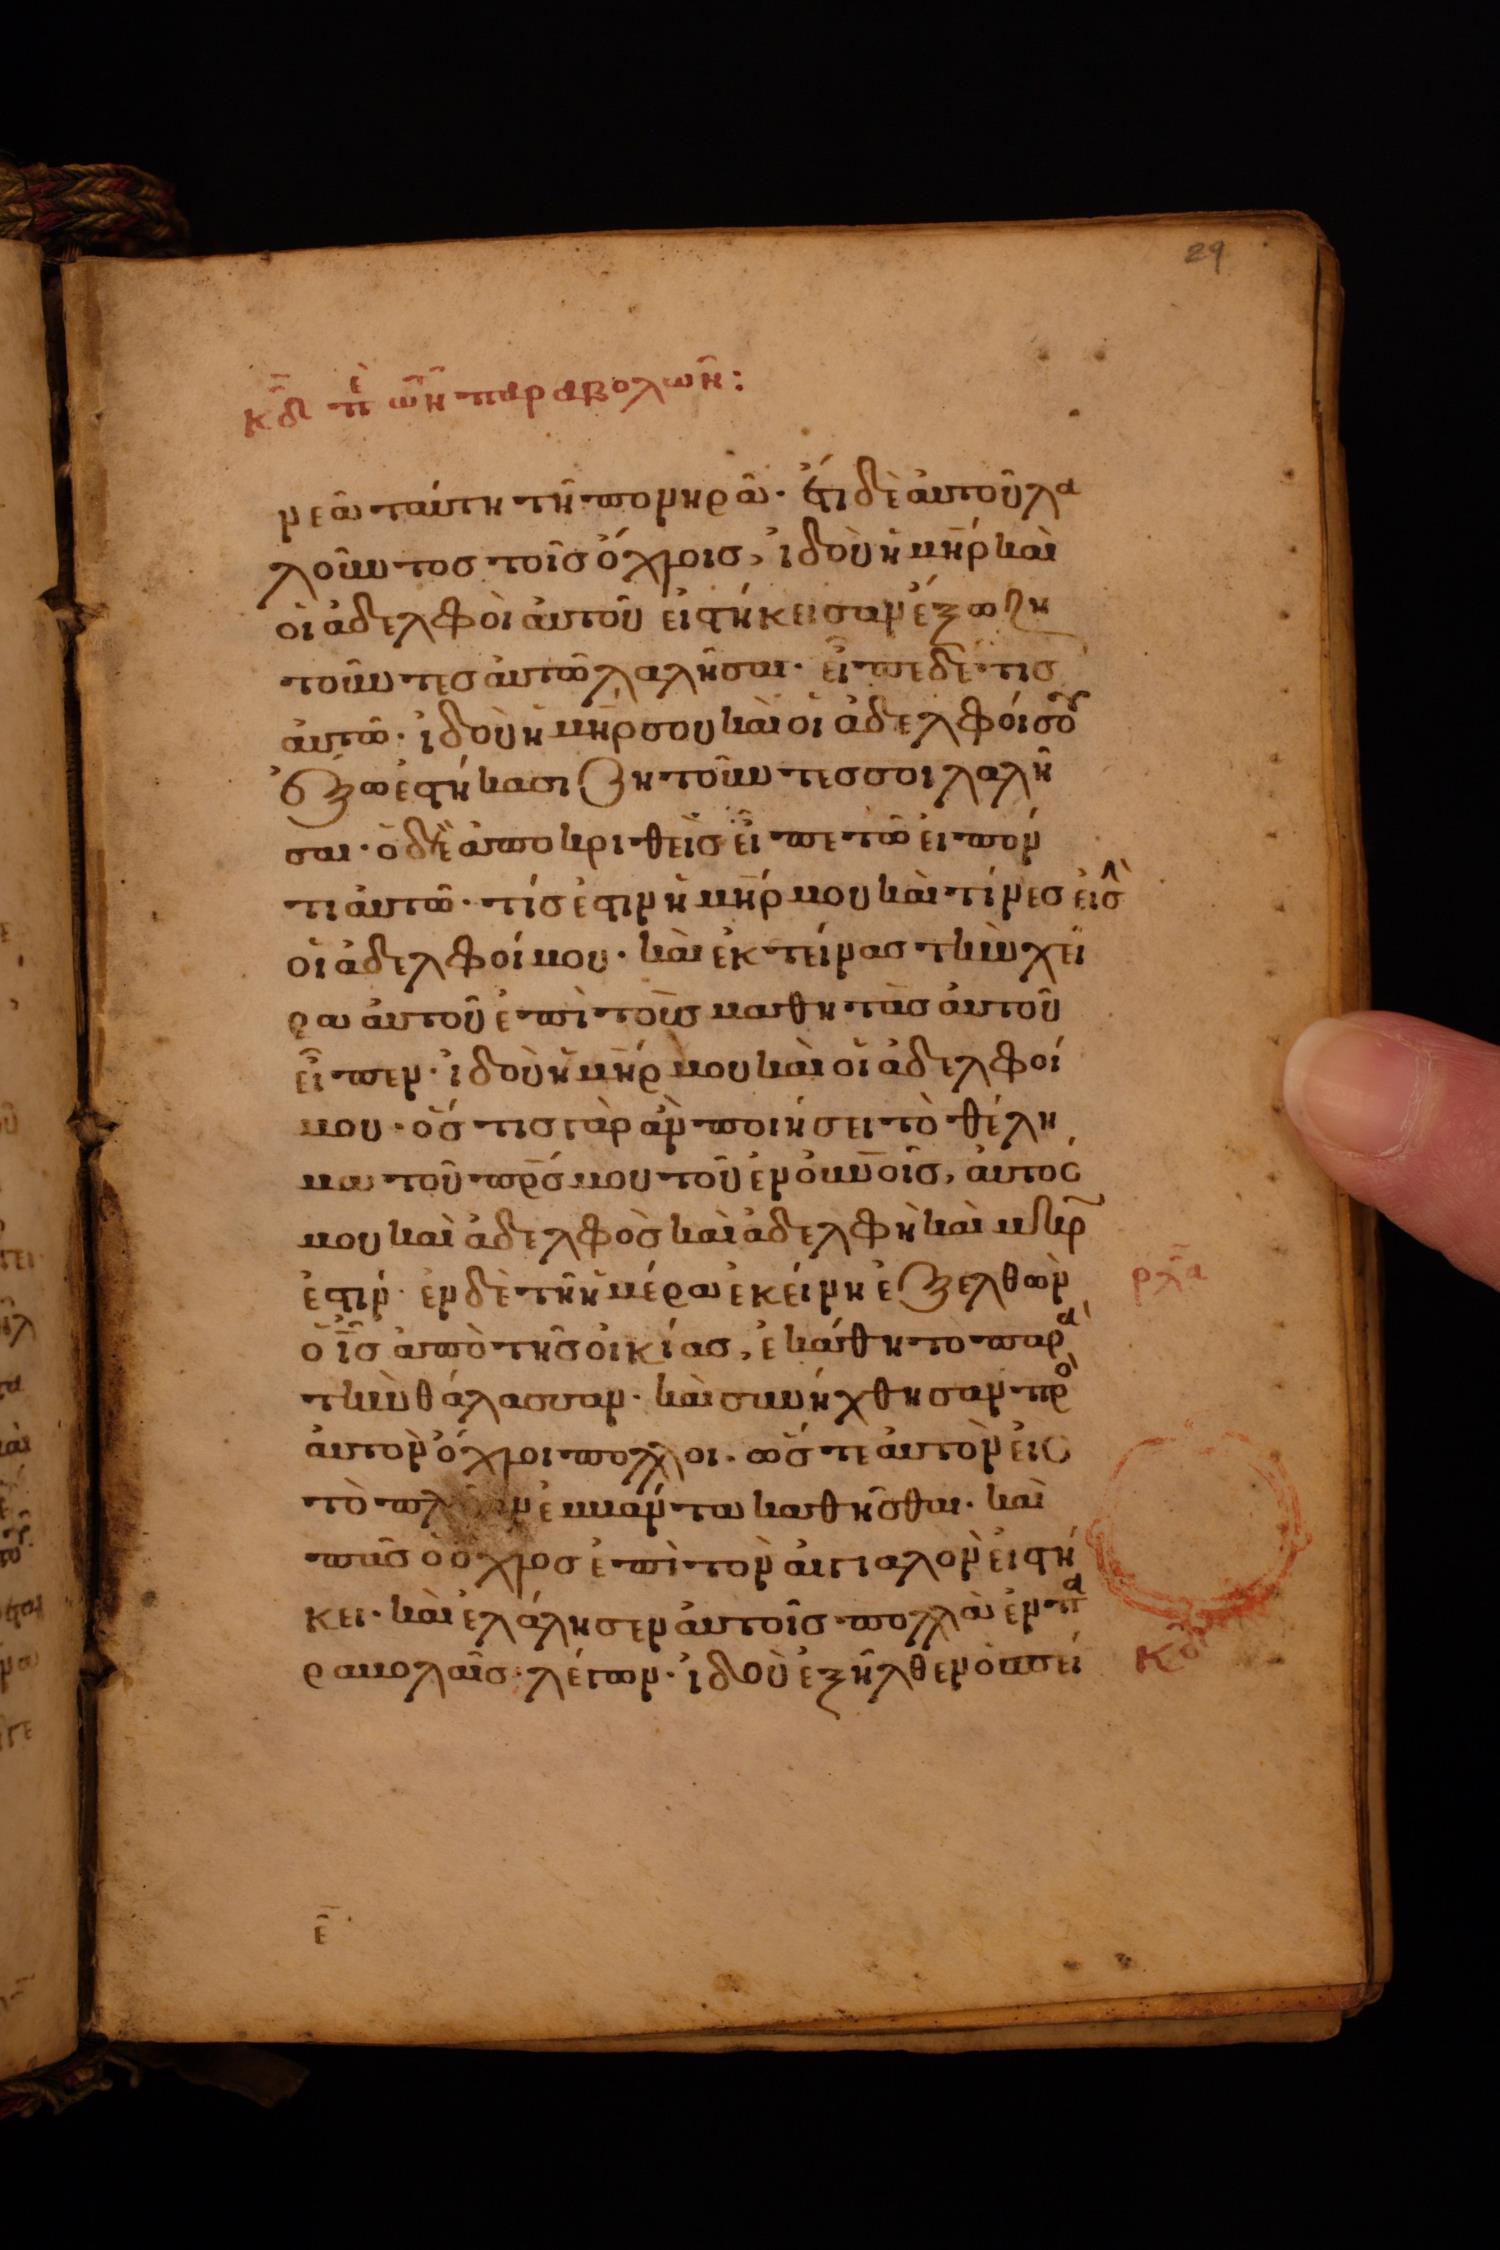 29
κδ πε τῶν παραβολῶν:
νεᾶ ταύτη τῆ πονηρᾶ· ἔτι δὲ ἀυτοῦ λα
λοῦντοσ τοῖσ ὄχλοισ, ἰδοὺ ἡ μη̅́ρ καὶ
οἱ ἀδελφοὶ ἀυτοῦ εἱστήκεισαν ἔξω ζη
τοῦντεσ ἀυτῶ λαλῆσαι· εἶπε δέ τισ
ἀυτῶ· ἰδοὺ ἡ μη̅́ρ σου καὶ οἱ ἀδελφόι σου
ἔξω ἑστήκασι ζητοῦντεσ σοι λαλῆ
σαι· ὁ δὲ ἀποκριθεὶσ εἶπε τῶ ειπόν
τι ἀυτῶ· τίσ ἐστιν ἡ μη̅́ρ μου καὶ τίνεσ εἰσὶ
οἱ ἀδελφοί μου· καὶ ἐκτείνασ τὴν χεῖ
ρα ἀυτοῦ ἐπὶ τοὺσ μαθητὰσ ἀυτοῦ
εἶπεν· ἰδοὺ ἡ μη̅́ρ μου καὶ οἱ ἀδελφοί
μου· ὅστισ γὰρ ἂν ποιήσει τὸ θέλη
μα τοῦ πρ̅σ μου τοῦ ἐν ὀυν̅οῖσ, ἀυτόσ
μου καὶ ἀδελφὸσ καὶ ἀδελφὴ καὶ μη̅ρ
ἐστίν· ἐν δὲ τῆ ἡμέρα ἐκείνη ἐξελθὼν
ρλα
ὁ ι̅σ ἀπὸ τῆσ οἰκίασ, ἐκάθητο παρὰ
τὴν θάλασσαν· καὶ συνήχθησαν πρὸ
ἀυτὸν ὄχλοι πολλοι· ὥστε ἀυτὸν εἰσ
τὸ πλ ἐμβάντα καθῆσθαι· καὶ
πᾶσ ὁ ὄχλοσ ἐπὶ τὸν ἀιγιαλὸν εἱστή
κει· καὶ ἐλάλησεν ἀυτοῖσ πολλὰ ἐν πα
ραβολαῖσ· λέγων· ἰδοὺ ἐξῆλθεν ὁ σπεί
κδ
ε̅